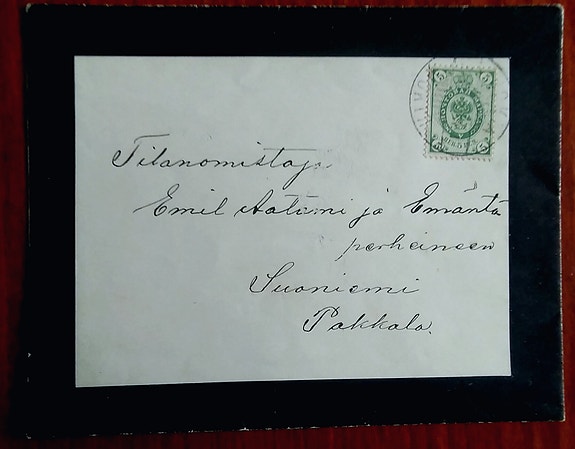 5 5
Tilanomistaja
Emil Aatumi ja Emäntä
perheineen
Suoniemi
Pakkala.